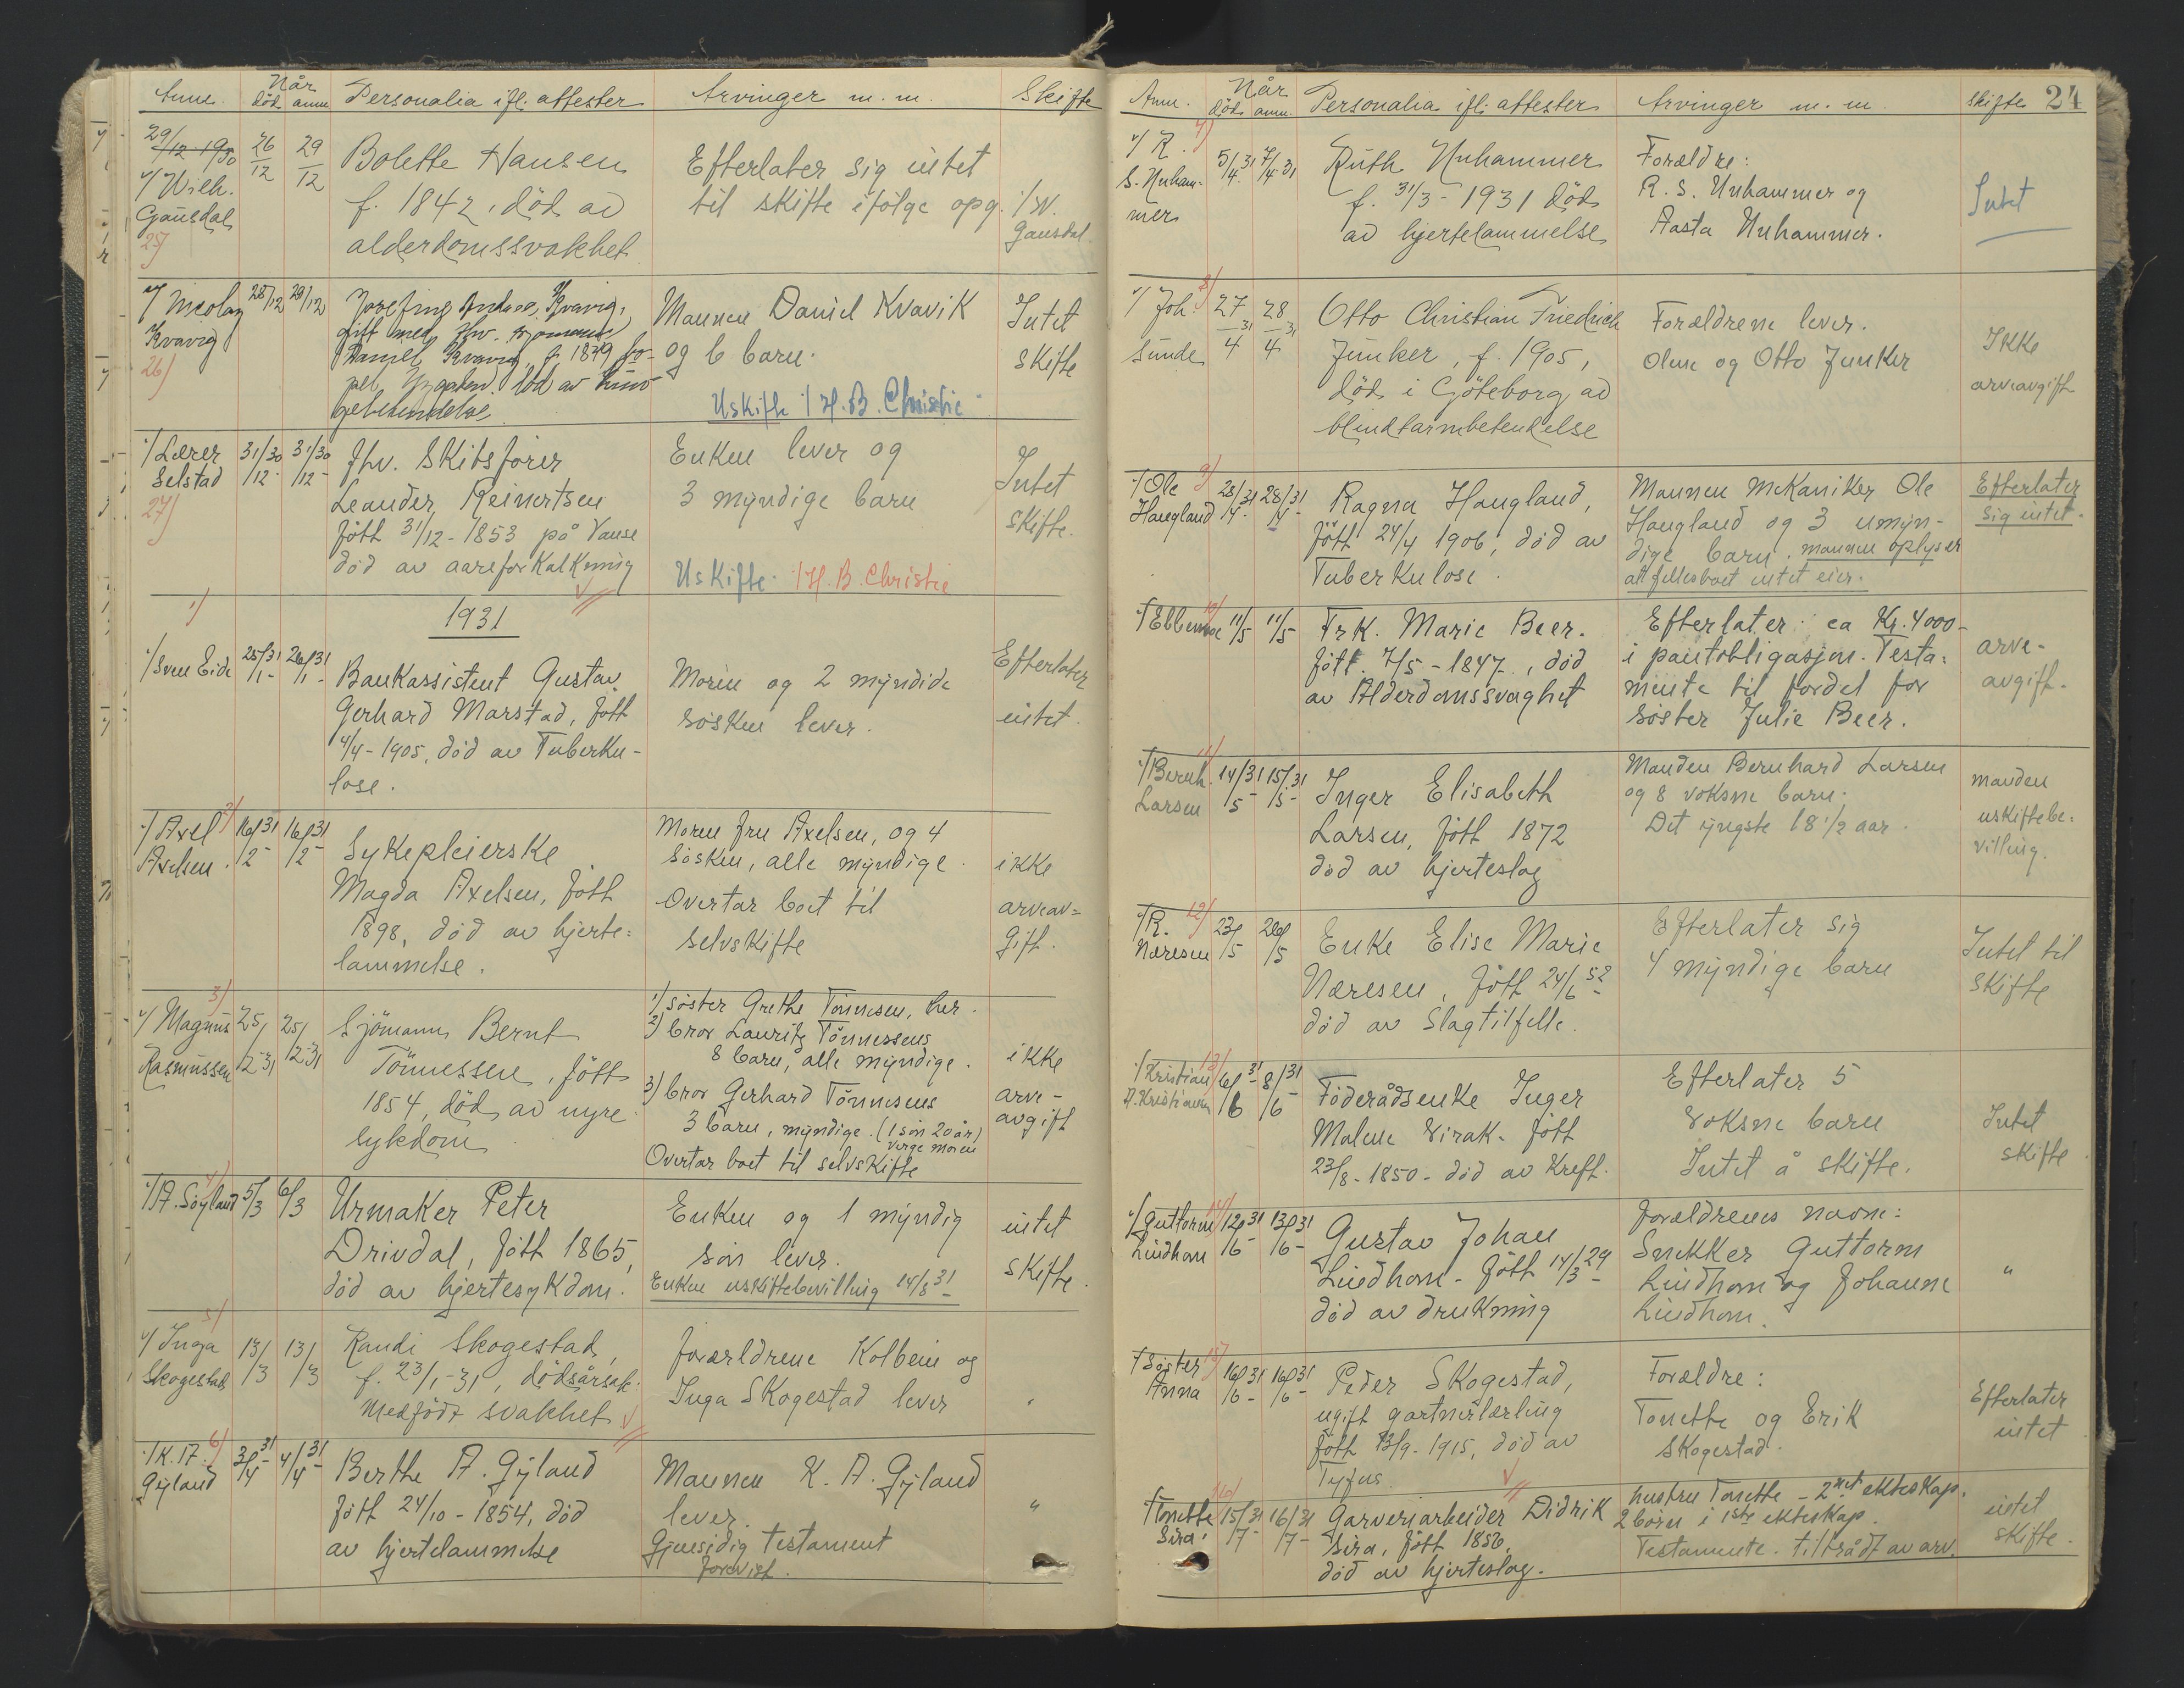 Anm. Når død anm. Personalia ifl. attester Arvinger m. m. Skifte
29/12 1930
v/ Wilh.
Gausdal
25)
26/12
29/12
Bolette Hansen
f. 1842, død av
alderdomssvakhet
Efterlater sig intet
til skifte ifølge opg.
/ W.
Gausdal.
v/ Nicolay
Kvavig
26)
28/12
29/12
Kvavig,
gift med fhv.
Daniel Kvavig, f. 1879
død av
Mannen Daniel Kvavik
og 6 barn.
Uskifte / H. B. Christie
Intet
skifte
v/ Lærer
Selstad
27)
31/12 30
31/12 30
fhv. Skibsfører
Leander Reinertsen
født 31/12 - 1853 på Vanse
død av aareforkalkning
Enken lever og
3 myndige barn
Uskifte. / H. B. Christie
Intet
skifte.
1931
1)
v/ Sven Eide
25/1 31
26/1 31
Bankassistent Gustav
Gerhard Marstad, født
4/4 - 1905, død av Tuberku-
lose.
Moren og 2 myndide
søsken lever.
Efterlater
intet.
2)
v/ Axel
Axelsen.
16/2 31
16/2 31
Sykepleierske
Magda Axelsen, født
1898, død av hjerte=
lammelse.
Moren fru Axelsen, og 4
søsken, alle myndige.
Overtar boet til
selvskifte
ikke
arveav=
gift.
3)
v/ Magnus
Rasmussen
25/2 31
25/2 31
Sjømann Bernt
Tönnessen, født
1854, død av nyre
sykdom
1) søster Grethe Tönnesen, her.
2) bror Lauritz Tönnessens
8 barn, alle myndige.
3) bror Gerhard Tönnesens
3 barn, myndige. (1 sön 20 år)
verge moren
Overtar boet til selvskifte
ikke
arve-
avgift
4)
v/ A. Söyland
5/3
6/3
Urmaker Peter
Drivdal, født 1865,
død av hjertesykdom.
Enken og 1 myndig
søn lever.
Enken uskiftebevilling 14/8 31
intet
skifte.
5)
v/ Inga
Skogestad
13/3
13/3
Randi Skogestad,
f. 23/1 - 31, dødsårsak:
medfødt svakhet
forældrene Kolbein og
Inga Skogestad lever
"
6)
v/ K. A.
Gyland
3/4 31
4/4 31
Berthe A. Gyland
født 24/10 - 1854, død
av hjertelammelse
Mannen K. A. Gyland
lever.
Gjensidig testament
forevist.
"
24
Anm. Når død anm. Personalia ifl. attester Arvinger m. m. Skifte
7)
v/ R.
S. Unham-
mer
5/4 31
7/4 31
Ruth Unhammer
f. 31/3 - 1931 død
av hjertelammelse
Forældre:
R. S. Unhammer og
Aasta Unhammer.
Intet
8)
v/ Joh.
Sunde
27/4 31
28/4 31
Otto Christian Friedrich
Junker, f. 1905,
død i Göteborg av
blindtarmbetendelse
Forældrene lever.
Olene og Otto Junker
Ikke
arveavgift
9)
v/ Ole
Haugland
28/4 31
28/4 31
Ragna Haugland,
født 24/4 1906, død av
Tuberkulose.
Mannen mekaniker Ole
Haugland og 3 umyn-
dige barn. mannen oplyser
at fellesboet intet eier.
Efterlater
sig intet.
10)
11/5
11/5
Frk. Marie Beer.
født. 7/5 - 1847., død
av Alderdomssvaghet
Efterlater ca Kr. 4000-
i pantobligasjon. Testa=
mente til fordel for
søster Julie Beer.
arve-
avgift.
11)
v/ Bernh.
Larsen
14/5 31
15/5 31
Inger Elisabeth
Larsen, født 1872
død av hjerteslag
Manden Bernhard Larsen
og 8 voksne barn.
Det yngste 18 1/2 aar.
manden
uskiftebe=
villing.
12)
v/ R.
Næresen
23/5
28/5
Enke Elise Marie
Næresen, født 24/6 52
død av Slagtilfelle.
Efterlater sig
4 myndige barn
Intet til
skifte
13)
v/ Kristian
A. Kristiansen
6/6 31
8/6 31
Föderådsenke Inger
Malene Virak. født
23/8 - 1850 - død av Kreft.
Efterlater 5
voksne barn
Intet å skifte.
Intet
skifte.
14)
v/ Guttorm
Lindhom
12/6 31
13/6 31
Gustav Johan
Lindhom - født 14/3 29
død av drukning
forældrenes navn:
Snekker Guttorm
Lindhom og Johanne
Lindhom.
"
15)
v/ Søster
Anna
16/6 31
16/6 31
Peder Skogestad,
ugift gartnerlærling
født 13/9 - 1915, død av
Tyfus
Forældre:
Tonette og Erik
Skogestad.
Efterlater
intet
16)
v/ Tonette
Sira.
15/7 31
16/7 31
Garveriarbeider Didrik
Sira, født 1856,
død av hjerteslag.
hustru Tonette - 2net ekteskap.
2 börn i 1ste ekteskap.
Testamente. tiltrådt av arv.
intet
skifte.